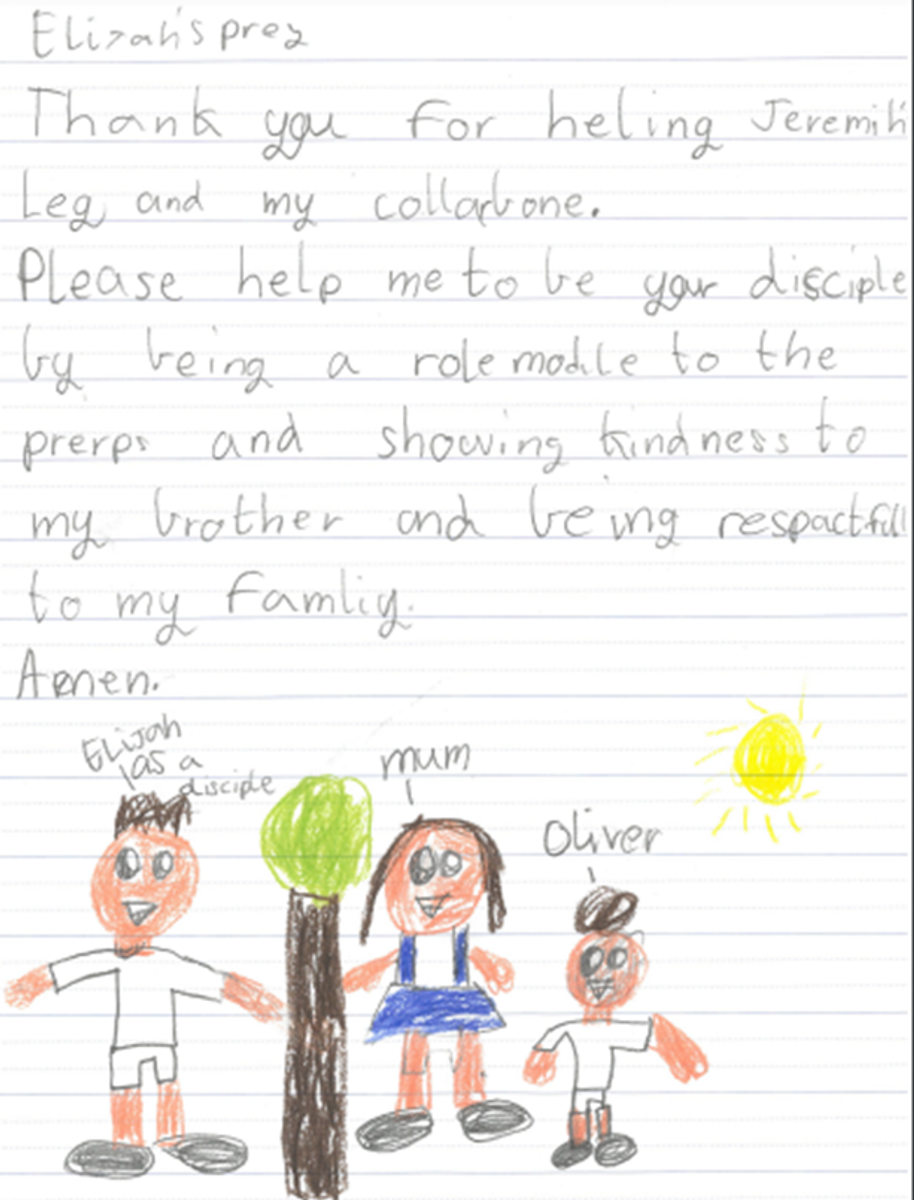 Elizah's prey
Thank you for heling Jeremih'
Leg and my collarbone.
Please help me to be your disciple
by being a role modle to the
prerps and showing kindness to
my brother and being respactfull
to my Famliy.
Amen.
Elijah
as a
disciple
mum
Oliver